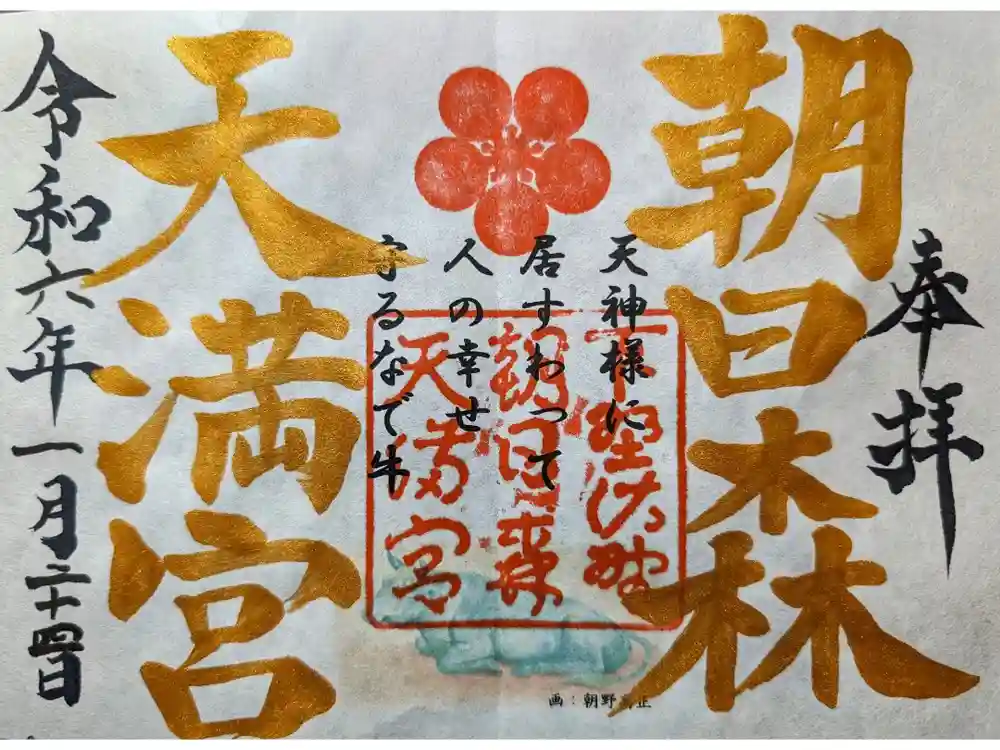 奉拝
朝日森
天満宮
天神様に
居すわって
人の幸せ
守るなで牛
下野佐野
朝日森
天満宮
令和六年一月二十四日
画：朝野